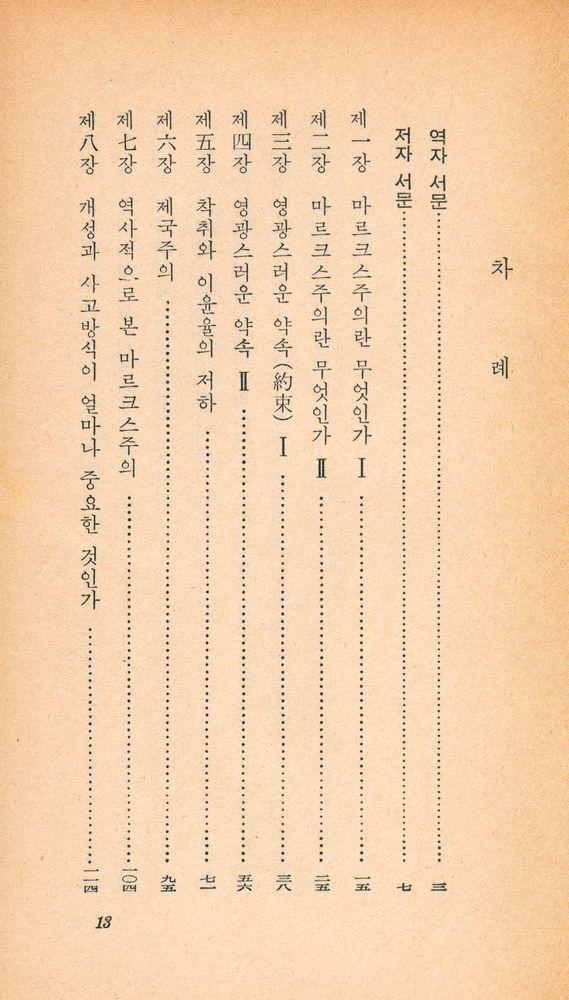 차 례
역자 서문……………三
저자 서문……………七
제一장 마르크스주의란 무엇인가 Ⅰ……………一五
제二장 마르크스주의란 무엇인가 Ⅱ……………二五
제三장 영광스러운 약속(約束) Ⅰ……………三八
제四장 영광스러운 약속 Ⅱ……………五六
제五장 착취와 이윤율의 저하……………七一
제六장 제국주의……………九五
제七장 역사적으로 본 마르크스주의……………一〇四
제八장 개성과 사고방식이 얼마나 중요한 것인가……………一一四
13